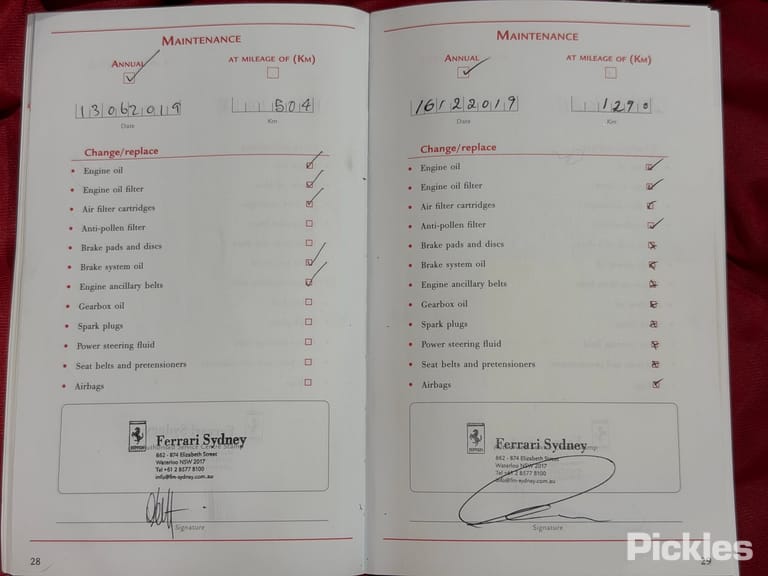 MAINTENANCE
ANNUAL
AT MILEAGE OF (KM)
13062019
504
Date
Km
Change/replace
Engine oil
Engine oil filter
Air filter cartridges
Anti-pollen filter
Brake pads and discs
Brake system oil
Engine ancillary belts
Gearbox oil
Spark plugs
Power steering fluid
Seat belts and pretensioners
Airbags
Ferrari Sydney
Authorised Service Centre Stamp
862 - 874 Elizabeth Street
Waterloo NSW 2017
Tel +61 2 8577 8100
info@fm-sydney.com.au
Signature
28
MAINTENANCE
ANNUAL
AT MILEAGE OF (KM)
16122019
1290
Date
Km
Change/replace
Engine oil
Engine oil filter
Air filter cartridges
Anti-pollen filter
Brake pads and discs
Brake system oil
Engine ancillary belts
Gearbox oil
Spark plugs
Power steering fluid
Seat belts and pretensioners
Airbags
Ferrari Sydney
862 - 874 Elizabeth Street
Waterloo NSW 2017
Tel +61 2 8577 8100
info@fm-sydney.com.au
Signature
29
Pickles